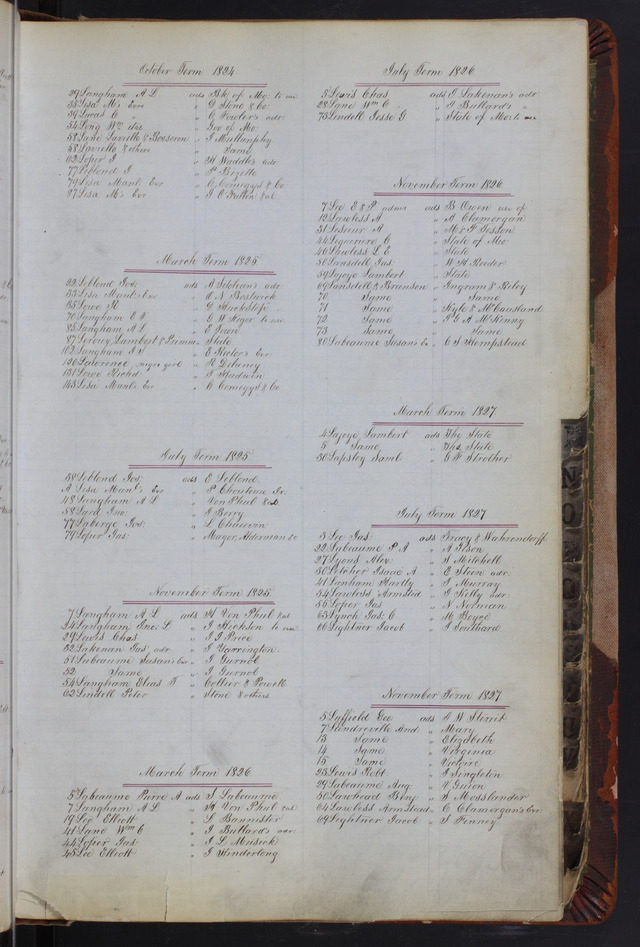 October Term 1824
29 Langham A L ads Bk of Mo. to use
33 Lisa M's Exr " G Stone & Co.
39 Lucas C " C Fowler's adr.
54 Long Wm " Gov of Mo.
58 Lane " J Mullanphy
58 & others " Same
62 Loper J " H Waddle's adr.
77 Leblond J " P
79 Lisa Manl. Exr " C Comegys & Co
87 Lisa M's Exr " J C &al
March Term 1825
22 Leblond Jos. ads A adr.
33 Lisa Manl's Exr " A N Bostwick
65 Lowe R " G Huckstep
70 Langham E S " E W to use
85 Langham A L " E
87 Lambert & " State
103 Langham J S " E Exr.
120 Lawrence, negro girl " R Delaney
131 Lowe Richd " J
143 Lisa Manl's Exr " C Comegys & Co
July Term 1825
38 Leblond Jos. ads E Leblond
A Lisa Manl's Exr " P Chouteau Jr.
48 Langham A L " Von Phul &al.
58 Lard Jno. " J Berry
77 Laberge Jos. " L Chauvin
79 Loper Jas. " Mayor, Alderman &c
November Term 1825
7 Langham A L ads H Von Phul &al
24 Langham L " J to use
29 Lewis Chas " J J Price
32 Lakenan Jas. adr " J Yarrington
51 Labeaume Susan's Exr " J Gurnoe
52 Same " J Gurnoe
54 Langham Elias T " Collier & Powell
62 Lindell Peter " Stone & others
March Term 1826
5 Labeaume Parre A ads L Labeaume
7 Langham A L " H Von Phul &al
19 Lee Elliott " L Bannister
41 Lane Wm C " J Bullard's adr.
44 Lopier Jas. " J L Musick
45 Lee Elliott " J Hinderlong
July Term 1826
5 Lewis Chas ads J Lakenan's adr
28 Lane Wm C " J Bullard's "
75 Lindell Jesse G " State of Mo. to use
November Term 1826
7 Lee E & P admr ads B Owen use of
12 Lawless A " A Clamorgan
31 Lesieur A " M & F
44 C " State of Mo.
46 Lawless L E " State
50 Lansdell Jas. " W H Reeder
59 Lajoye Lambert " State
69 Lansdell & Branson " Ingram & Riley
70 Same " Same
71 Same " Kyle & McCausland
72 Same " J & A McKinny
73 Same " Same
80 Labeaume Susan's Ex " C S Hempstead
March Term 1827
4 Lajoye Lambert ads The State
5 Same " The State
30 Lapsley Saml. " G F Strother
July Term 1827
3 Lee Jas. ads Tracy & Wahrendorff
22 Labeaume P A " A Elson
27 Lyons Alex. " S Mitchell
30 Letcher Isaac A " E Steen adr.
41 Lanham Hartly " J Murray
54 Lawless Armstd " J Kelly adr.
55 Lopier Jas " N Norman
63 Lynch Jas. C " M Boyce
66 Lightner Jacob " J Southard
November Term 1827
5 Laffield Geo ads J W Sterrit
7 Landreville And " Mary
13 Same " Elizabeth
14 Same " Virginia
15 Same " Victoire
25 Lewis Robt " J Singleton
29 Labeaume Aug " V Guion
50 Lawhead Benj. " S Mosslander
64 Lawless Armstead " C Clamorgan's Exr.
69 Lightner Jacob " S Finney
N
O